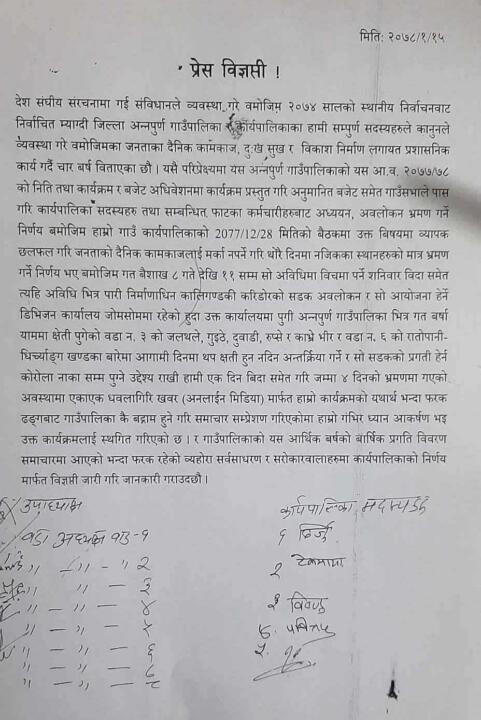 मिति: २०७८/१/१५
प्रेस विज्ञप्ती !
देश संघीय संरचनामा गई संविधानले व्यवस्था गरे वमोजिम २०७४ सालको स्थानीय निर्वाचनवाट
निर्वाचित म्याग्दी जिल्ला अन्नपुर्ण गाउँपालिका कार्यपालिकाका हामी सम्पुर्ण सदस्यहरुले कानुनले
व्यवस्था गरे वमोजिमका जनताका दैनिक कामकाज, दुःख सुख र विकाश निर्माण लगायत प्रशासनिक
कार्य गर्दै चार बर्ष विताएका छौ । यसै परिप्रेक्ष्यमा यस अन्नपुर्ण गाउँपालिकाको यस आ.व. २०७७/७८
को निति तथा कार्यक्रम र बजेट अधिवेशनमा कार्यक्रम प्रस्तुत गरि अनुमानित बजेट समेत गाउँसभाले पास
गरि कार्यपालिका सदस्यहरु तथा सम्बन्धित फाटका कर्मचारीहरुबाट अध्ययन, अवलोकन भ्रमण गर्ने
निर्णय बमोजिम हाम्रो गाउँ कार्यपालिकाको 2077/12/28 मितिको बैठकमा उक्त बिषयमा व्यापक
छलफल गरि जनताको दैनिक कामकाजलाई मर्का नपर्ने गरि थोरै दिनमा नजिकका स्थानहरुको मात्र भ्रमण
गर्ने निर्णय भए बमोजिम गत बैशाख ८ गते देखि ११ सम्म सो अविधिमा विचमा पर्ने शनिवार विदा समेत
त्यहि अविधि भित्र पारी निर्माणाधिन कालिगण्डकी करिडोरको सडक अवलोकन र सो आयोजना हेर्ने
डिभिजन कार्यालय जोमसोममा रहेको हुदा उक्त कार्यालयमा पुगी अन्नपुर्ण गाउँपालिका भित्र गत बर्षा
याममा क्षेती पुगेको वडा न. ३ को जलथले, गुइठे, दुवाडी, रुप्से र काभ्रे भीर र वडा न. ६ को रातोपानी-
घिर्च्याङ्ग खण्डका बारेमा आगामी दिनमा थप क्षती हुन नदिन अन्तर्क्रिया गर्ने र सो सडकको प्रगती हेर्न
कोरोला नाका सम्म पुग्ने उद्देश्य राखी हामी एक दिन बिदा समेत गरि जम्मा ४ दिनको भ्रमणमा गएको
अवस्थामा एकाएक धवलागिरि खवर (अनलाईन मिडिया) मार्फत हाम्रो कार्यक्रमको यथार्थ भन्दा फरक
ढङ्गबाट गाउँपालिका कै बद्राम हुने गरि समाचार सम्प्रेशण गरिएकोमा हाम्रो गंभिर ध्यान आकर्षण भइ
उक्त कार्यक्रमलाई स्थगित गरिएको छ । र गाउँपालिकाको यस आर्थिक बर्षको बार्षिक प्रगति विवरण
समाचारमा आएको भन्दा फरक रहेको व्यहोरा सर्वसाधरण र सरोकारवालाहरुमा कार्यपालिकाको निर्णय
मार्फत विज्ञप्ती जारी गरि जानकारी गराउदछौ ।
उपाध्यक्ष कार्यपालिका
वडा अध्यक्ष वडा-१ १
,, ,, - ,, २ २
,, - ,, - ३
,, - ,, - ४ ३ विष्णु
,, - ,, - ५ ४.
,, - ,, - ६ ५.
,, - ,, - ७
,, - ,, - ८